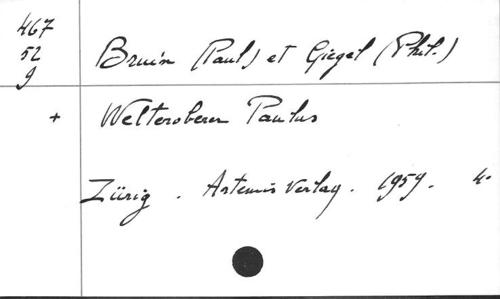 467
52
9
Bruin (Paul) et Giegel (Phil.)
+ Welteroberer Paulus
Zürig . Artemis Verlag . 1959 . 4°